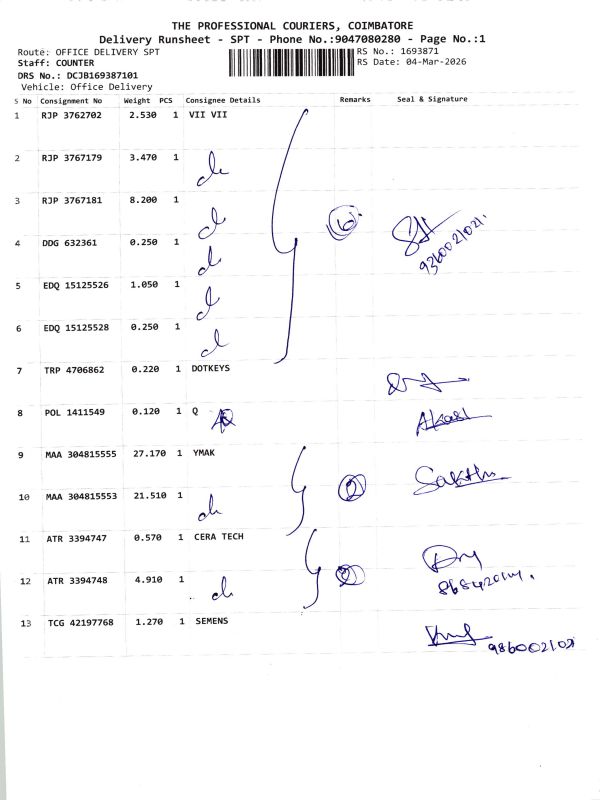 THE PROFESSIONAL COURIERS, COIMBATORE
Delivery Runsheet - SPT - Phone No.:9047080280 - Page No.:1
Route: OFFICE DELIVERY SPT
RS No.: 1693871
Staff: COUNTER
RS Date: 04-Mar-2026
DRS No.: DCJB169387101
Vehicle: Office Delivery
S No Consignment No Weight PCS Consignee Details Remarks Seal & Signature
1 RJP 3762702 2.530 1 VII VII
2 RJP 3767179 3.470 1 do
3 RJP 3767181 8.200 1 do
6
4 DDG 632361 0.250 1 do
5 EDQ 15125526 1.050 1 do
6 EDQ 15125528 0.250 1 do
7 TRP 4706862 0.220 1 DOTKEYS
8 POL 1411549 0.120 1 Q Akash
9 MAA 304815555 27.170 1 YMAK
2 Sakthi
10 MAA 304815553 21.510 1 do
11 ATR 3394747 0.570 1 CERA TECH
2
12 ATR 3394748 4.910 1 do
13 TCG 42197768 1.270 1 SEMENS